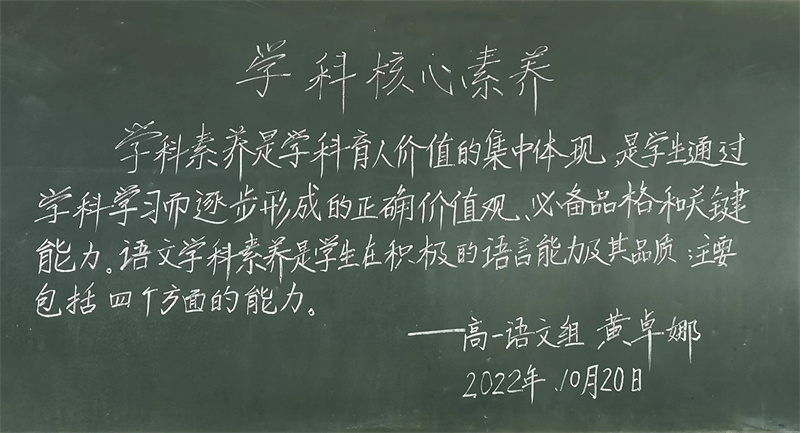 学科核心素养
学科素养是学科育人价值的集中体现,是学生通过
学科学习而逐步形成的正确价值观、必备品格和关键
能力。语文学科素养是学生在积极的语言能力及其品质;主要
包括四个方面的能力。
——高一语文组 黄卓娜
2022年.10月20日